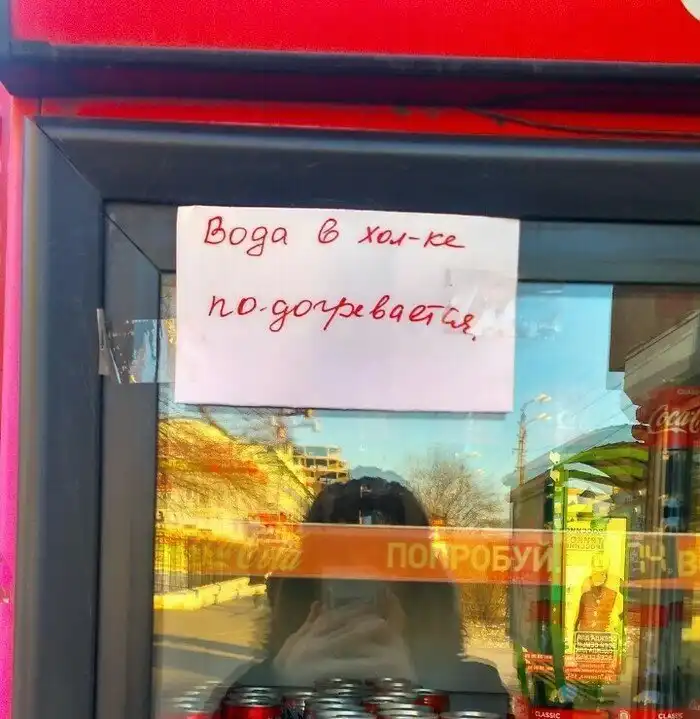 Вода в хол-ке
по-догревается.
Coca-Cola
ПОПРОБУЙ
CLASSIC
CLASSIC